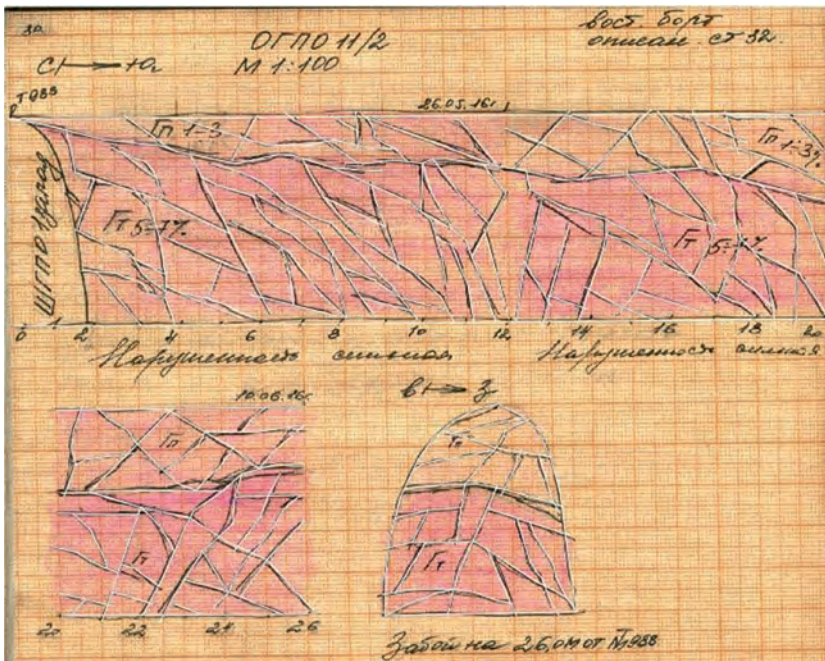 30
ОГПО 11/2
вост. борт
С Ю
М 1:100
описан. ст 32.
Т 988
26.05.16г
Гп 1-3
Гп 1-3%
ШГПО 1 запад
Гт 5-7%
Гт 5-7%
0 2 4 6 8 10 12 14 16 18 20
Нарушенность сильная
Нарушенность сильная
10.06.16г.
В З
Гп
Гп
Гт
Гт
20 22 24 26
Забой на 26,0м от Т988